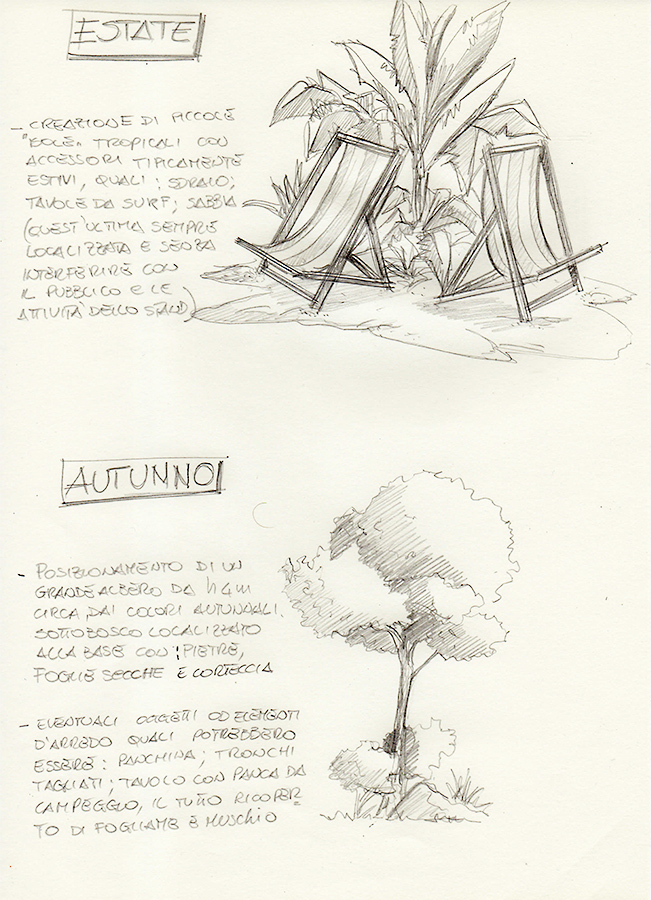 ESTATE
- CREAZIONE DI PICCOLE
"ISOLE" TROPICALI CON
ACCESSORI TIPICAMENTE
ESTIVI, QUALI: SDRAIO;
TAVOLE DA SURF; SABBIA
(QUEST'ULTIMA SEMPRE
LOCALIZZATA E SENZA
INTERFERIRE CON
IL PUBBLICO E LE
ATTIVITÀ DELLO STAND)
AUTUNNO
- POSIZIONAMENTO DI UN
GRANDE ALBERO DA H 4 m
CIRCA, DAI COLORI AUTUNNALI.
SOTTOBOSCO LOCALIZZATO
ALLA BASE CON: PIETRE,
FOGLIE SECCHE E CORTECCIA
- EVENTUALI OGGETTI OD ELEMENTI
D'ARREDO QUALI POTREBBERO
ESSERE: PANCHINA; TRONCHI
TAGLIATI; TAVOLO CON PANCA DA
CAMPEGGIO, IL TUTTO RICOPER-
TO DI FOGLIAME E MUSCHIO